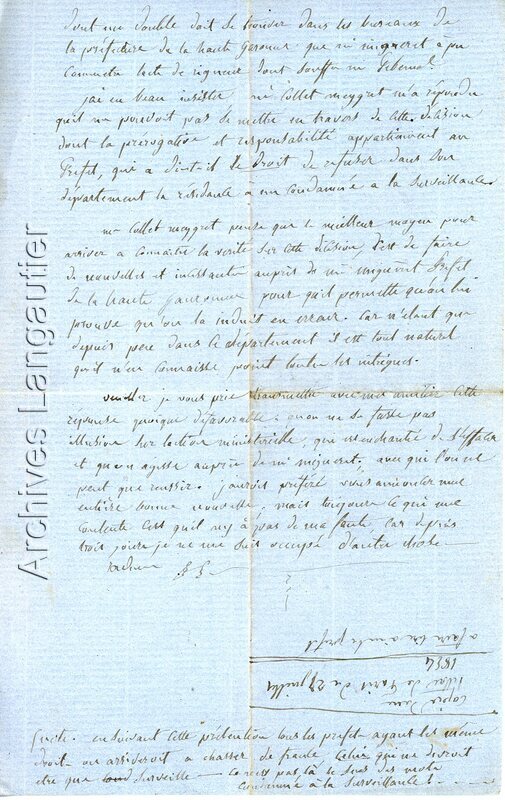 dont un double doit se trouver dans les bureaux de
la préfecture de la haute garonne que mr migneret a pu
connaitre l'acte de rigueur dont souffre mr
j'ai eu beau insister mr Collet meygret m'a répondu
qu'il ne pouvoit pas se mettre en travers de cette décision
dont la prerogative et responsabilité appartiennent au
Préfet, qui a dit-il le Droit de refuser dans son
département la résidence a un condamnée a la surveillance
mr Collet meygret pense que le meilleur moyen pour
arriver a connaitre la verité sur cette décision, c'est de faire
de nouvelles et instantes auprès de mr migneret Préfet
de la haute garonne pour qu'il permette qu'on lui
prouve qu'on la induit en erreur. car n'étant que
depuis peu dans le département il est tout naturel
qu'il n'en connaisse point toutes les intrigues.
veuillez je vous prie transmettre avec mes amitiés cette
reponse quoique défavorable. qu'on ne se fasse pas
illusion sur l'action ministerielle, que
et qu'on agisse auprès de mr migneret, avec qui l'on ne
peut que reussir. j'aurois préféré vous annoncer une
entière bonne nouvelle, mais toujours ce qui me
contente c'est qu'il n'y a pas de ma faute, car depuis
trois jours je ne me suis occupé d'autre chose
copie d'une
lettre de Paris du 27 juillet
1854
a faire lire a mr le préfet
suite. en suivant cette prétention tous les prefets ayant les même
droit on arriveroit a chasser de france celui qui ne devroit
etre que surveillé ce n'est pas là le sens des mots
condamné a la surveillance!
Archives Langautier